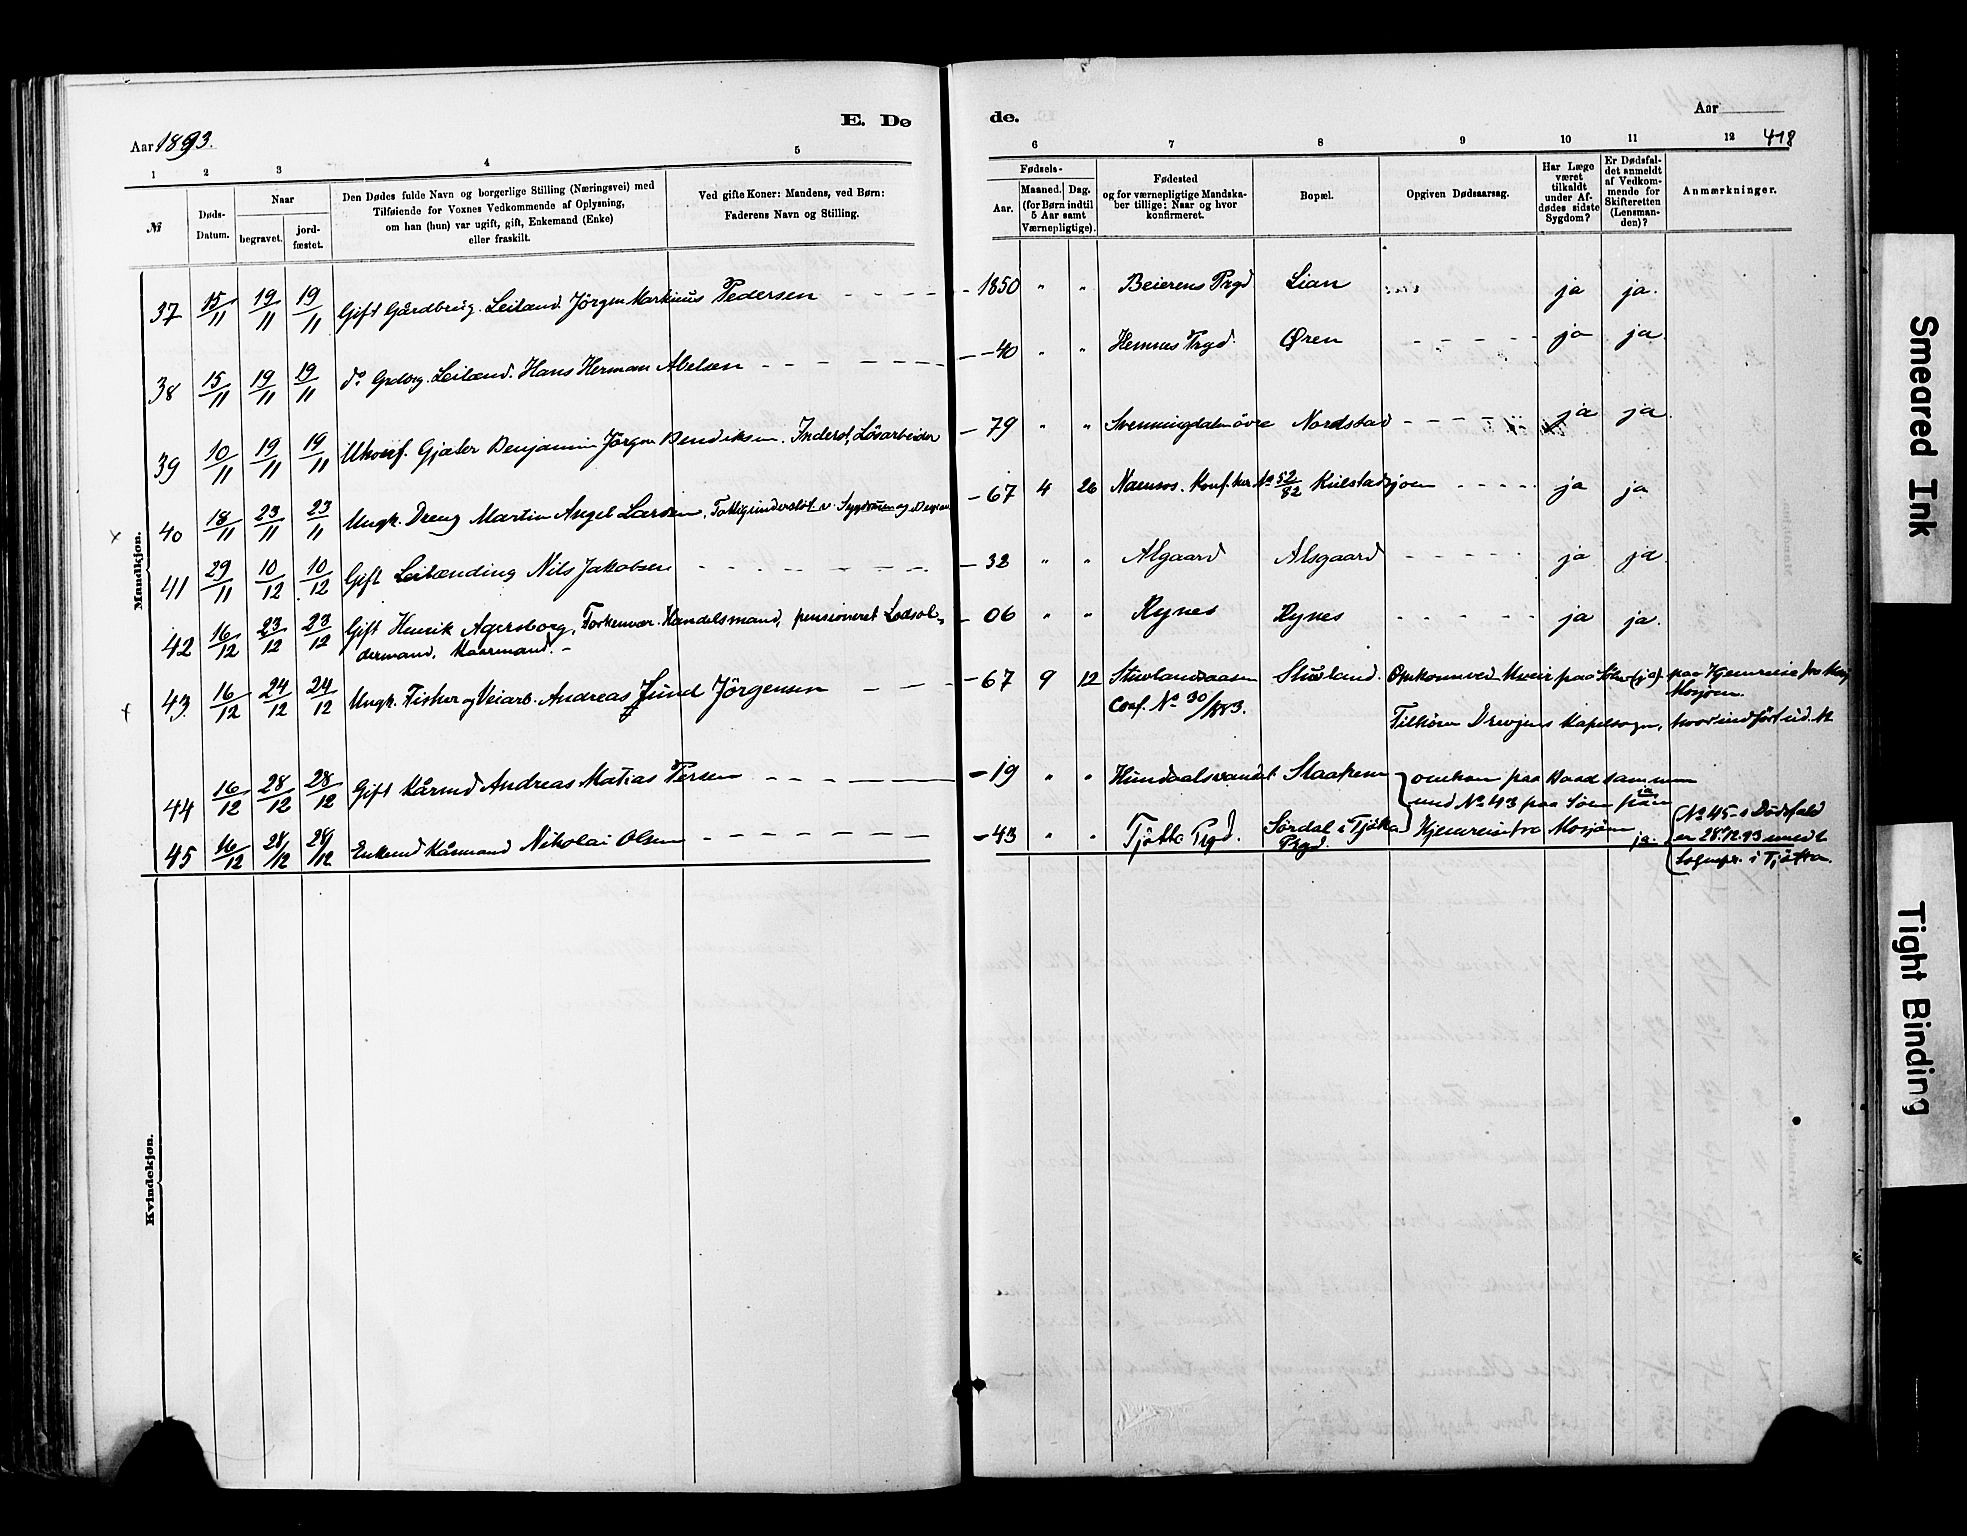 E. Dø de.
Aar 1893. Aar
418
1 2 3 4 5 6 7 8 9 10 11 12
№ Døds-Datum. Naar begravet. jordfæstet. Den Dødes fulde Navn og borgerlige Stilling (Næringsvei) med Tilføiende for Voxnes Vedkommende af Oplysning, om han (hun) var ugift, gift, Enkemand (Enke) eller fraskilt. Ved gifte Koner: Mandens, ved Børn: Faderens Navn og Stilling. Fødsels- Aar. Maaned. Dag. (for Børn indtil 5 Aar samt Værnepligtige). Fødested og for værnepligtige Mandskaber tillige: Naar og hvor konfirmeret. Bopæl. Opgiven Dødsaarsag. Har Læge været tilkaldt under Afdødes sidste Sygdom? Er Dødsfaldet anmeldt af Vedkommende for Skifteretten (Lensmanden)? Anmærkninger.
Mandkjøn.
37 15/11 19/11 19/11 Gift Gårdbrug. Leiland. Jörgen Markius Pedersen - - - - 1850 " " Beierens Prgd Lian ja ja.
38 15/11 19/11 19/11 do Grdbrg. Leilænd. Hans Herman Abelsen - - - - - 40 " " Hemnes Prgd. Øren - - - - - ja ja
39 10/11 19/11 19/11 Ukonf. Gjæter Benjamin Jörgen Bendiksen. Inderst, Lösarbeider - 79 " " Svenningdalen övre Nordstad - - - - ja ja
x 40 18/11 23/11 23/11 Ungk. Dreng Martin Angel Larsen, - 67 4 26 Namsos. Konf. her № 52/82 Kulstadsjoen - - - - ja ja
41 29/11 10/12 10/12 Gift Leilænding Nils Jakobsen - - - - - 32 " " Alsgaard Alsgaard - - - - - ja ja
42 16/12 23/12 23/12 Gift Henrik Agersborg, Handelsmand, pensioneret Lodsol- - 06 " " Rynes Rynes - - - - - ja ja.
dermand, Kaarmand. -
x 43. 16/12 24/12 24/12 Ungk. Fisker og Veiarb. Andreas Jörgensen - - - 67 9 12 Stuvland. Omkom ved Uveir paa Söen (ja) paa Hjemreise fra
Conf. № 30/883. Mosjøen.
Tilhörer Drevjens Kapelsogn, hvor indført
44 16/12 28/12 28/12 Gift Kårmd Andreas Matias Persen - - - - - 19 " " Hundaalsvandet omkom paa Baad sammen
med № 43 paa Söen paa
45 16/12 28/12 29/12 Enkemd Kårmand Nikolai Olsen - - - - - 43 " " Tjötta Prgd. Sördal i Tjötta Prgd. Hjemreise fra Mosjöen ja. (№ 45-s Dödsfald
er 28.12.93 meldt
Sognepr. i Tjötta.
Kvindekjøn.
Smeared Ink
Tight Binding